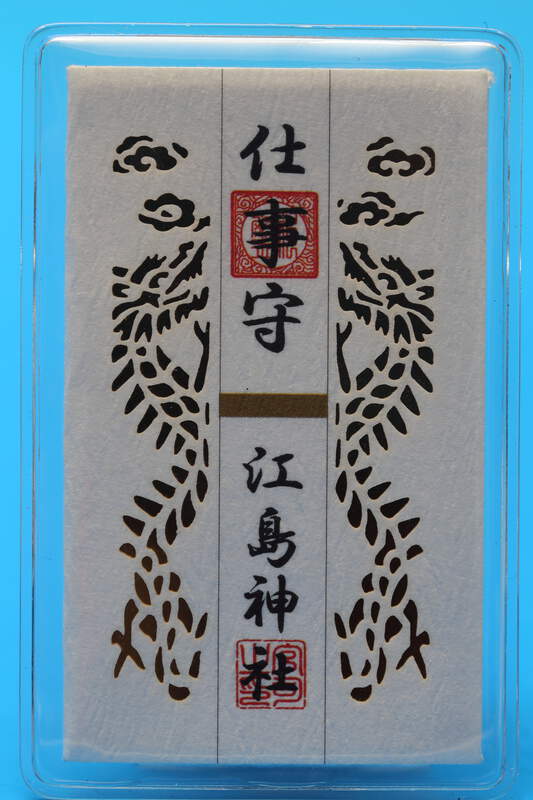 仕事守
江島神社